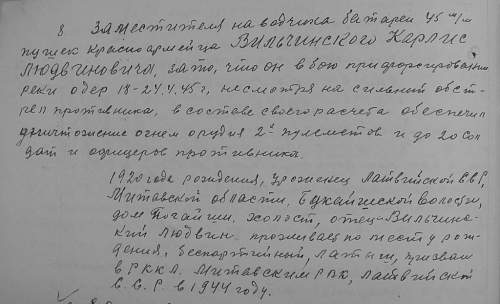 8 Заместителя наводчика батареи 45 м/м
пушек красноармейца Вильчинского Карлис
Людвиновича, за то, что он в бою при форсировании
реки одер 18-24.4.45 г, несмотря на сильный обст-
рел противника, в составе своего расчета обеспечил
уничтожение огнем орудия 2х пулеметов и до 20 сол
дат и офицеров противника.
1920 года рождения, уроженец Латвийской ССР,
Митавской области, Букайшской волости,
дом холост, отец - Вильчинс-
кий Людвин. проживает по месту рож-
дения, беспартийный, латыш, призван
в РККА Митавским РВК, Латвийской
С.С.Р. в 1944 году.